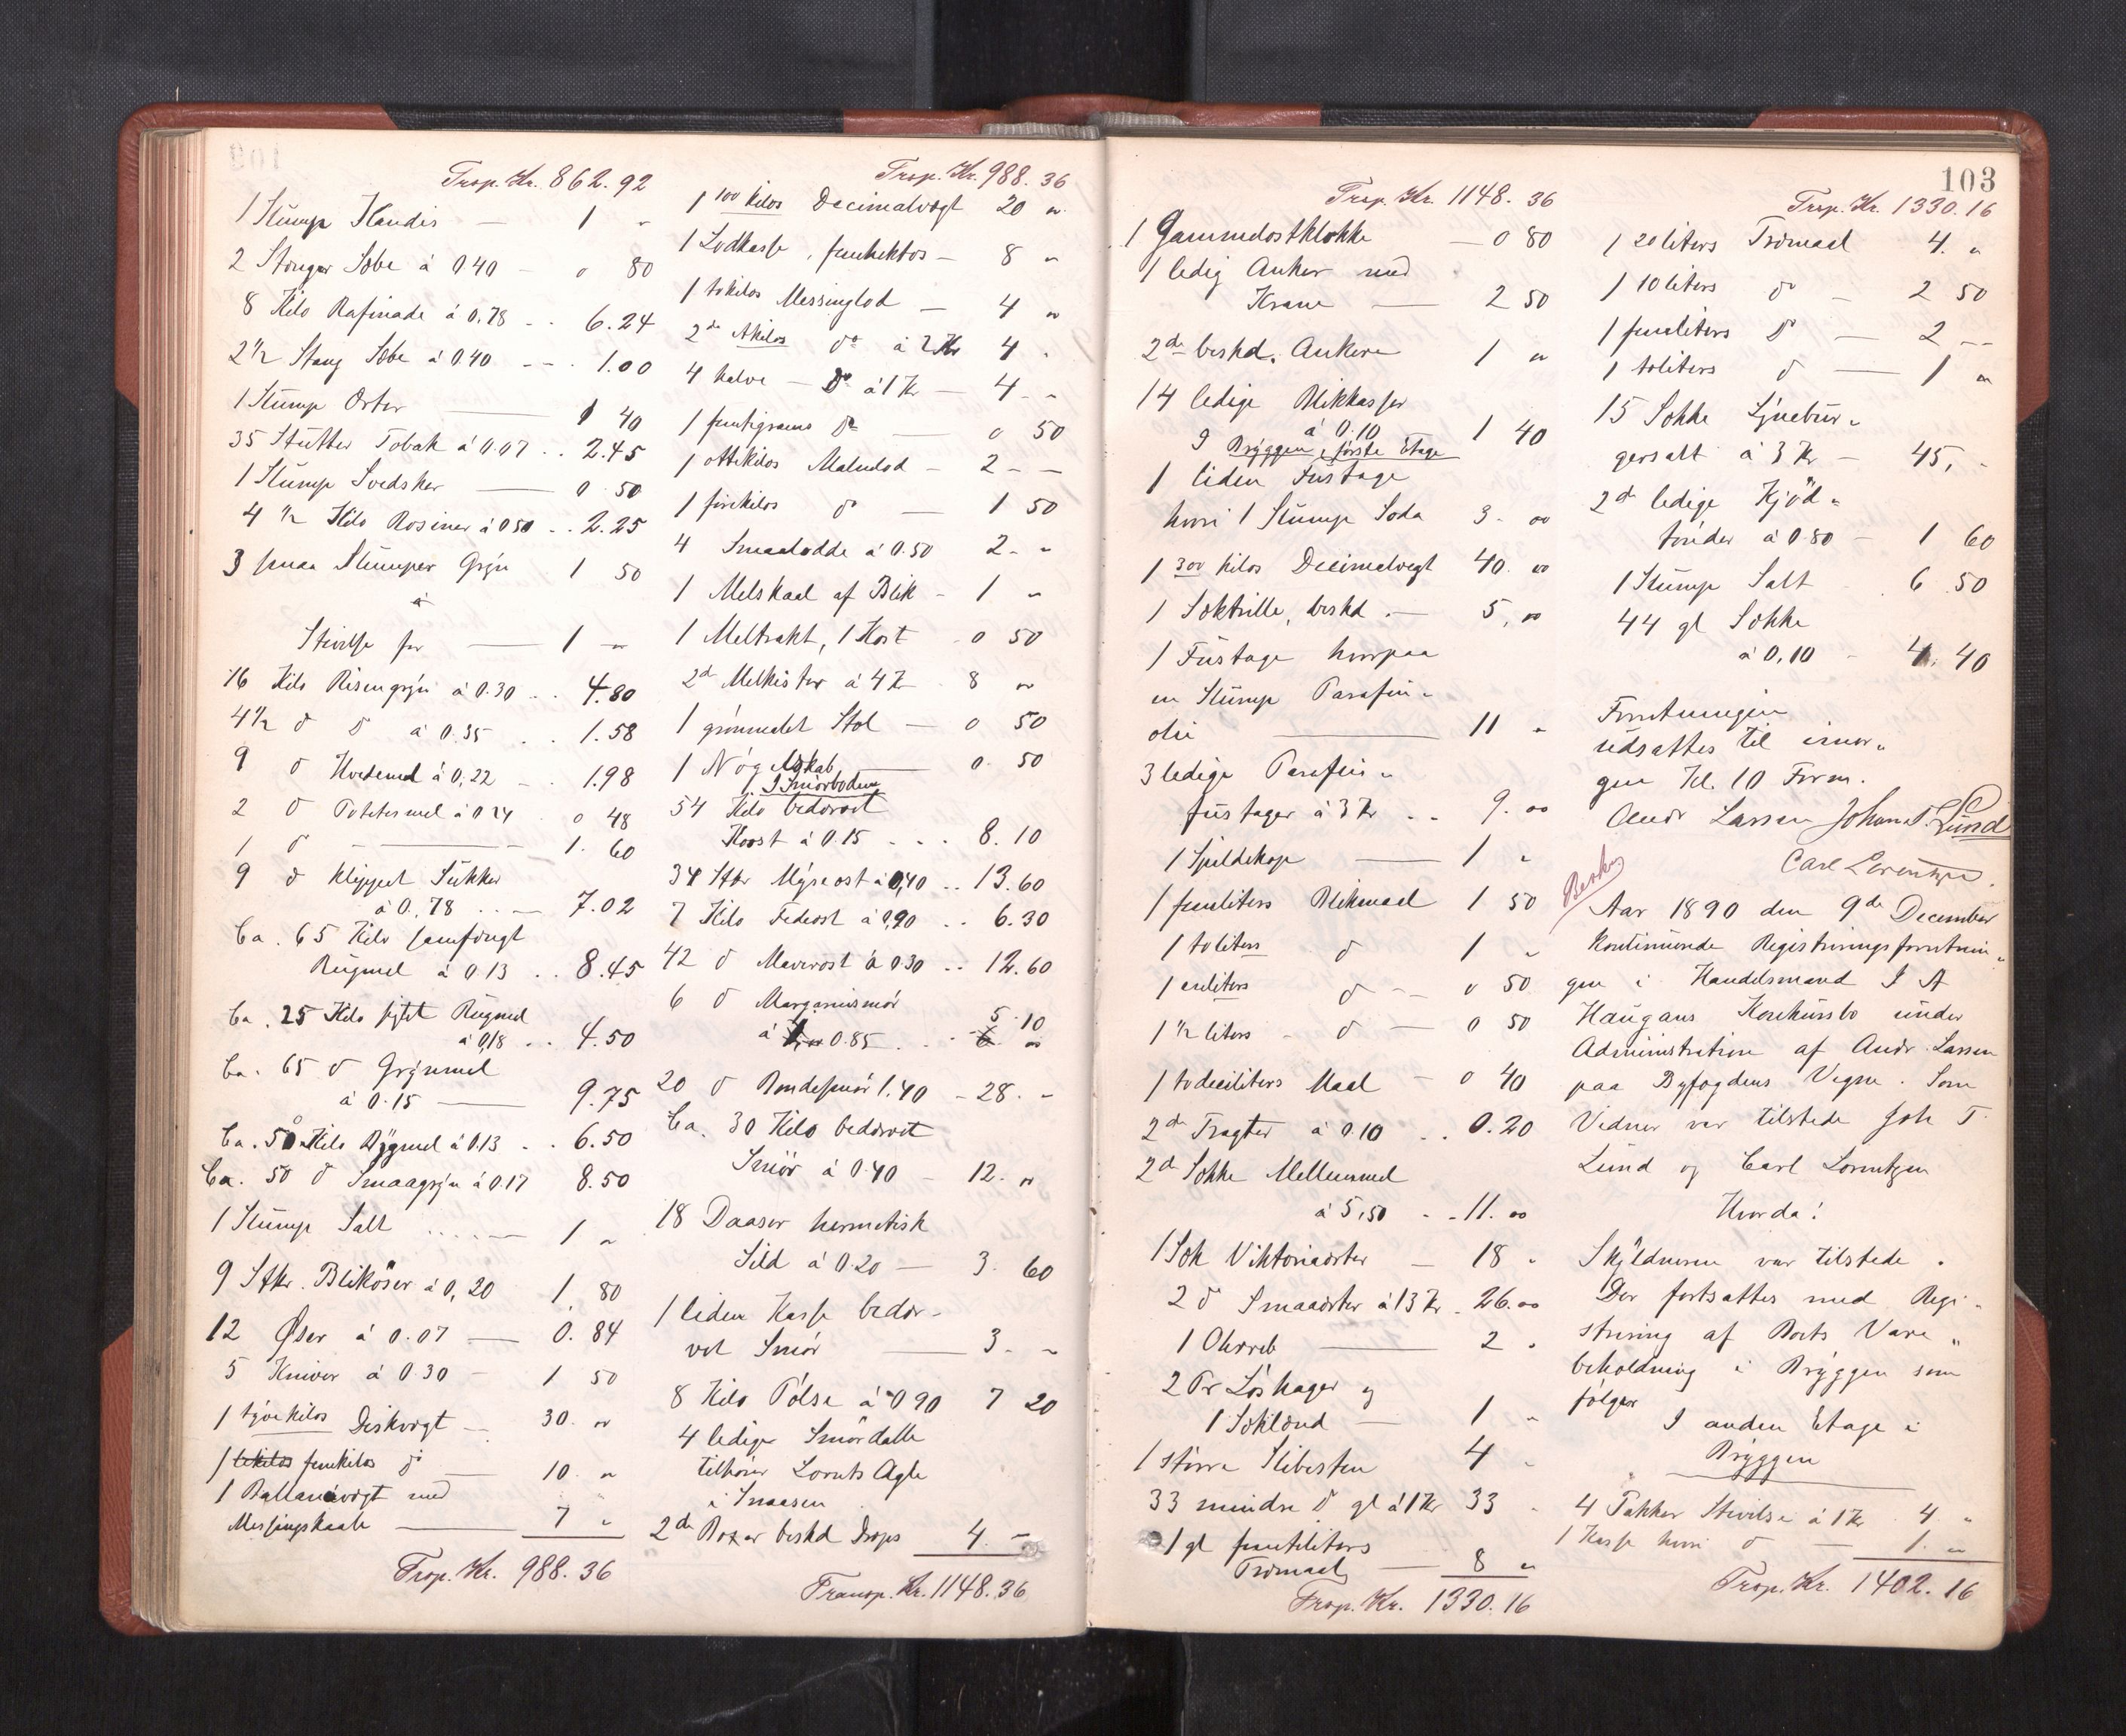 Trsp. Kr. 862.92
1 Stump Kandis — 1 "
2 Stænger Sæbe á 0.40 - 0 80
8 Kilo Rafinade á 0.78 .. 6.24
2 1/2 Stang Sæbe á 0.40 --- 1.00
1 Stump Orter — 0 40
35 Stutter Tobak á 0.07 .. 2.45
1 Stump Svedsker — 0 50
4 1/2 Kilo Rosiner á 0.50 .. 2.25
3 smaa Stumper Gryn 1 50
Stivelse for — 1 "
16 Kilo Risengryn á 0.30 .. 4.80
4 1/2 do do á 0.35 .. 1.58
9 do Hvedemel á 0,22 - 1.98
2 do Potetesmel á 0.24 0 48
1 do — 1. 60
9 do klippet Sukker
á 0,78 ... 7.02
Ca. 65 Kilo samfængt
Rugmel á 0.13 .. 8.45
Ca. 25 Kilo sigtet Rugmel
á 0,18 .. 4.50
Ca. 65 do Grynmel
á 0.15 — 9.75
Ca. 50 Kilo Bygmel á 0.13 .. 6.50
Ca. 50 do Smaagryn á 0.17 8.50
1 Stump Salt ..... 1 "
9 Stkr. Bliköser á 0,20 1, 80
12 Øser á 0.07 — 0. 84
5 Kniver á 0.30 - 1 50
1 tyvekilos Diskvægt — 30. "
1 tokilos femkilos do — 10. "
1 Ballancevægt med
Messingskaale — 7 "
Trsp. Kr. 988.36
Trsp. Kr. 988.36
1 100 kilos Decimalvægt 20 "
1 Lodkasse, femhektos — 8 "
1 tokilos Messinglod — 4 "
2de 1kilos do á 2 Kr 4 "
4 halve — do á 1 Kr — 4 - "
1 femtigrams do — 0 50
1 ottekilos Malmlod — 2 - —
1 firekilos do — 1 50
4 Smaalodde á 0.50 2 - "
1 Melskaal af Blik - 1 "
1 Meltrakt, 1 Kost - 0 50
2de Melkister á 4 Kr 8 "
1 grönmalet Stol — 0 50
1 Nögelskab — 0. 50
I Smörboden
54 Kilo bedærvet
Koost á 0.15 ... 8.10
34 Stkr Myseost á 0,40 .. 13.60
7 Kilo Fedeost á 0,90 .. 6.30
42 do Maverost á 0.30 .. 12.60
6 do Margarinsmör 5.10
á 0.85 ...
20 do Bondesmör 1.40 - 28. -
Ca. 30 Kilo bedærvet
Smör á 0.40 - 12. "
18 Daaser hermetisk
Sild á 0.20 — 3. 60
1 liden Kasse bedær-
vet Smör — 3. ~
8 Kilo Pölse á 0 90 7 20
4 ledige Smördalle
tilhører Lornts Agle
i Snaasen
2de Boxer beskd Drops 4. —
Transp. Kr. 1148.36
103
Trsp. Kr. 1148.36
1 Gammelostklokke — 0 80
1 ledig Anker med
Krane — 2 50
2de beskd. Ankere 1 "
14 ledige Blikkasser
á 0.10 1 40
I Bryggen, i förste Etage
1 liden Fustage
hvori 1 Stump Soda 3. "
1 300 kilos Decimalvægt 40. "
1 Sæktrille, beskd. — 5, "
1 Fustage hvorpaa
en Stump Parafin-
olie — 11 "
3 ledige Parafin-
fustager á 3 Kr .. 9. "
1 Spildekop — 1 "
1 femliters Blikmaal 1 50
1 toliters do 1 "
1 enliters do — 0 50
1 1/2 liters - do — 0 50
1 todeciliters Maal — 0 40
2de Tragter á 0.10 .. 0.20
2de Sække Mellemmel
á 5,50 .. 11. "
1 Sæk Viktoriaærter — 18 "
2 do Smaaærter á 13 Kr. 26. "
1 Ohrreb — 2 "
2 Pr Löskager og
1 Søklænd — 1 "
1 större Slibesten 4 "
33 mindre do gl á 1 Kr 33 "
1 gl femtiliters
Træmaal — 8 "
Trsp. Kr. 1330.16
Trsp. Kr. 1330.16
1 20 liters Træmaal 4. "
1 10 liters do — 2 50
1 femliters do — 2 --
1 toliters do — 1 "
15 Sække Lynebur-
gersalt á 3 Kr — 45, -
2de ledige Kjöd-
tönder á 0.80 — 1 60
1 Stump Salt 6 50
44 gl Sække
á 0,10 — 4, 40
Forretningen
udsattes til imor-
gen Kl. 10 Form.
Andr Lassen Johan T. Lund
Carl Lorentzen.
Aar 1890 den 9de December
kontinuerede Registreringsforretnin-
gen i Handelsmand J A
Haugans Konkursbo under
Administration af Andr. Lassen
paa Byfogdens Vegne. Som
Vidner var tilstede Joh T.
Lund og Carl Lorentzen
Hvorda!
Skyldneren var tilstede.
Der fortsattes med Regi-
strering af Boets Vare-
beholdning i Bryggen som
fölger
I anden Etage i
Bryggen
4 Pakker Stivelse á 1 Kr. 4. "
1 Kasse hvori do — 1. "
Trsp. Kr. 1402.16